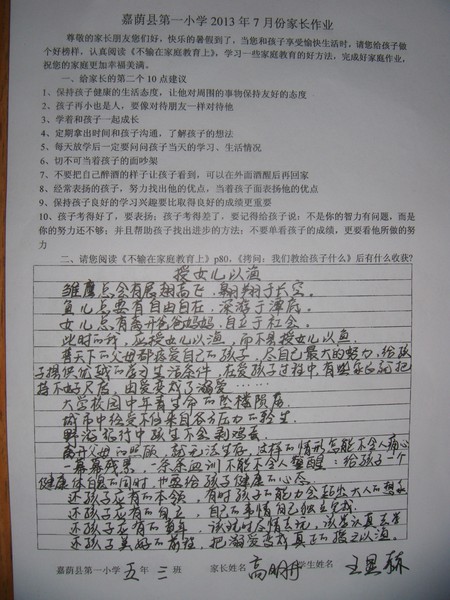 嘉荫县第一小学 2013 年 7 月份家长作业
尊敬的家长朋友您们好，快乐的暑假到了，当您和孩子享受愉快生活时，请您给孩子做
个好榜样，认真阅读《不输在家庭教育上》，学习一些家庭教育的好方法，完成好家庭作业，
祝您的家庭更加幸福美满。
一、给家长的第二个 10 点建议
1、保持孩子健康的生活态度，让他对周围的事物保持友好的态度
2、孩子再小也是人，要像对待朋友一样对待他
3、学着和孩子一起成长
4、定期拿出时间和孩子沟通，了解孩子的想法
5、每天放学后一定要问问孩子当天的学习、生活情况
6、切不可当着孩子的面吵架
7、不要把自己醉酒的样子让孩子看到，可以在外面酒醒后再回家
8、经常表扬的孩子，努力找出他的优点，当着孩子面表扬他的优点
9、保持孩子良好的学习兴趣要比取得良好的成绩更重要
10、孩子考得好了，要表扬；孩子考得差了，要记得给孩子说：不是你的智力有问题，而是
你的努力还不够；并且帮助孩子找出进步的方法；不要单看孩子的成绩，更要看他所做的努
力
二、请您阅读《不输在家庭教育上》p80,《拷问：我们教给孩子什么》后有什么收获?
授女儿以渔
雏鹰总会有展翅高飞，翱翔于长空。
鱼儿总要有自由自在，深游于潭底。
女儿总有离开爸爸妈妈，自立于社会。
此时的我，应授女儿以渔，而不是授女儿以鱼。
普天下的父母都疼爱自己的孩子，尽自己最大的努力，给孩
子提供优越的学习生活条件，在爱孩子过程中有些家长把
握不好尺度，由爱变成了溺爱……
大学校园中年青生命的坠楼陨落。
城市中经受不住来自各方压力而轻生。
野泊旅行中孩生不会剥鸡蛋。
离开父母的照顾，就无法生存，这样的情形怎能不令人痛心
一幕幕残景，一条条血训不能不令人警醒：给孩子一个
健康体魄的同时，也要给孩子健康的心态。
还孩子应有的本领，有时孩子的能力会超出大人的想象
还孩子应有的自立，自己的事情自己独立完成。
还孩子应有的童年，该玩时尽情去玩，该学认真去学
还孩子美好的前程，把溺爱变成真正的授之以渔。
嘉荫县第一小学 五 年 三 班 家长姓名 学生姓名